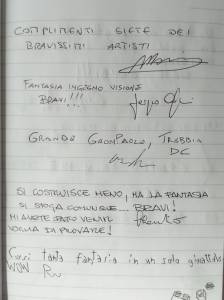 COMPLIMENTI SIETE DEI
BRAVISSIMI ARTISTI
FANTASIA INGEGNO VISIONE
BRAVI!!!
GRANDE GIONPAOLO, TREBBIA
DC
SI COSTRUISCE MENO, MA LA FANTASIA
SI SFOGA COMUNQUE... BRAVI!
MI AVETE FATTO VENIRE
VOGLIA DI PROVARE!
tanta fantasia in un solo
WOW